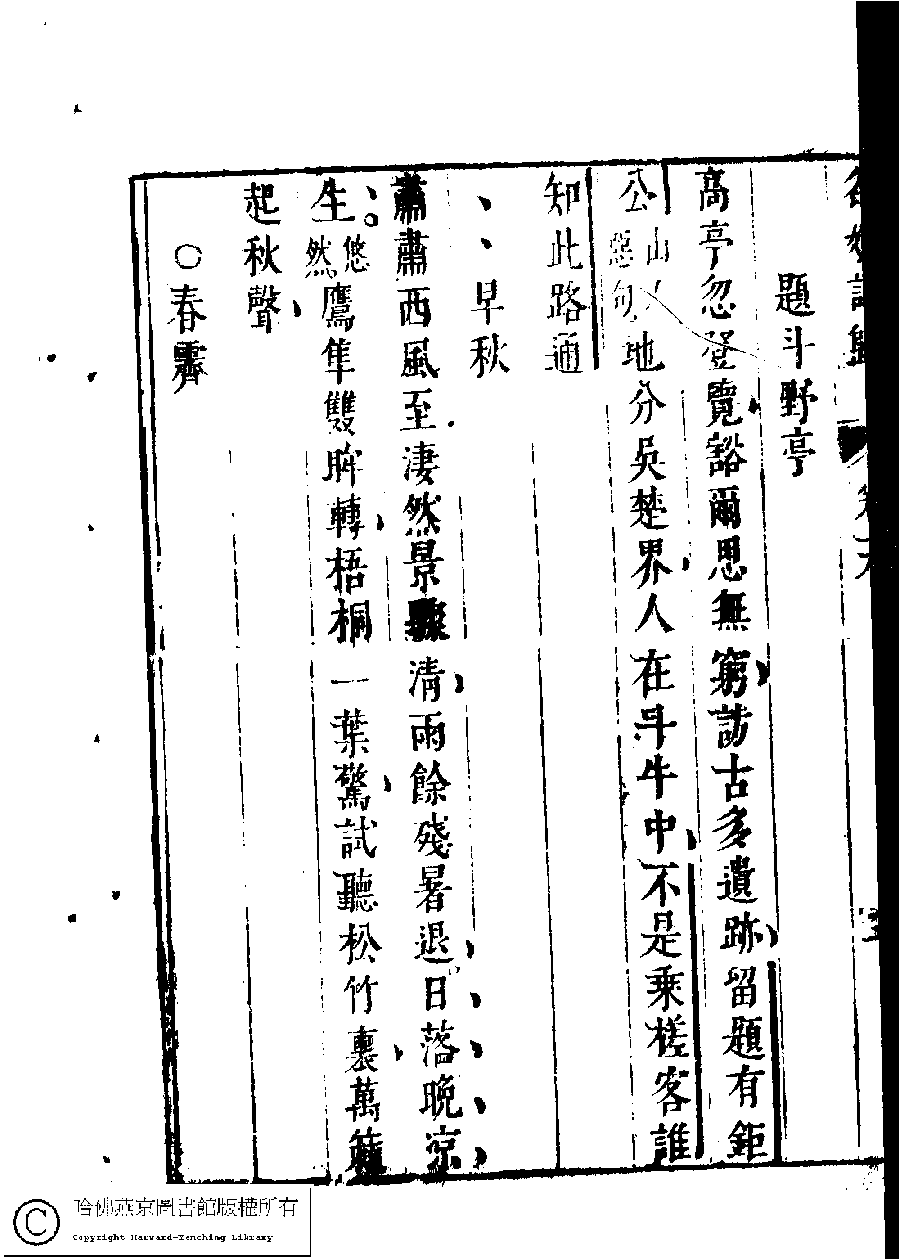 題斗野亭
高亭忽登覽豁爾思無窮訪古多遺跡留題有鉅
公惡句地分吳楚界人在斗牛中不是乘槎客誰
知此路通
早秋
蕭蕭西風至淒然景驟清雨餘殘暑退日落晚凉
生悠然鷹隼雙眸轉梧桐一葉驚試聽松竹裏萬籟
起秋聲
○春霽
哈佛燕京圖書館版權所有
Copyright Harvard-Yenching Library